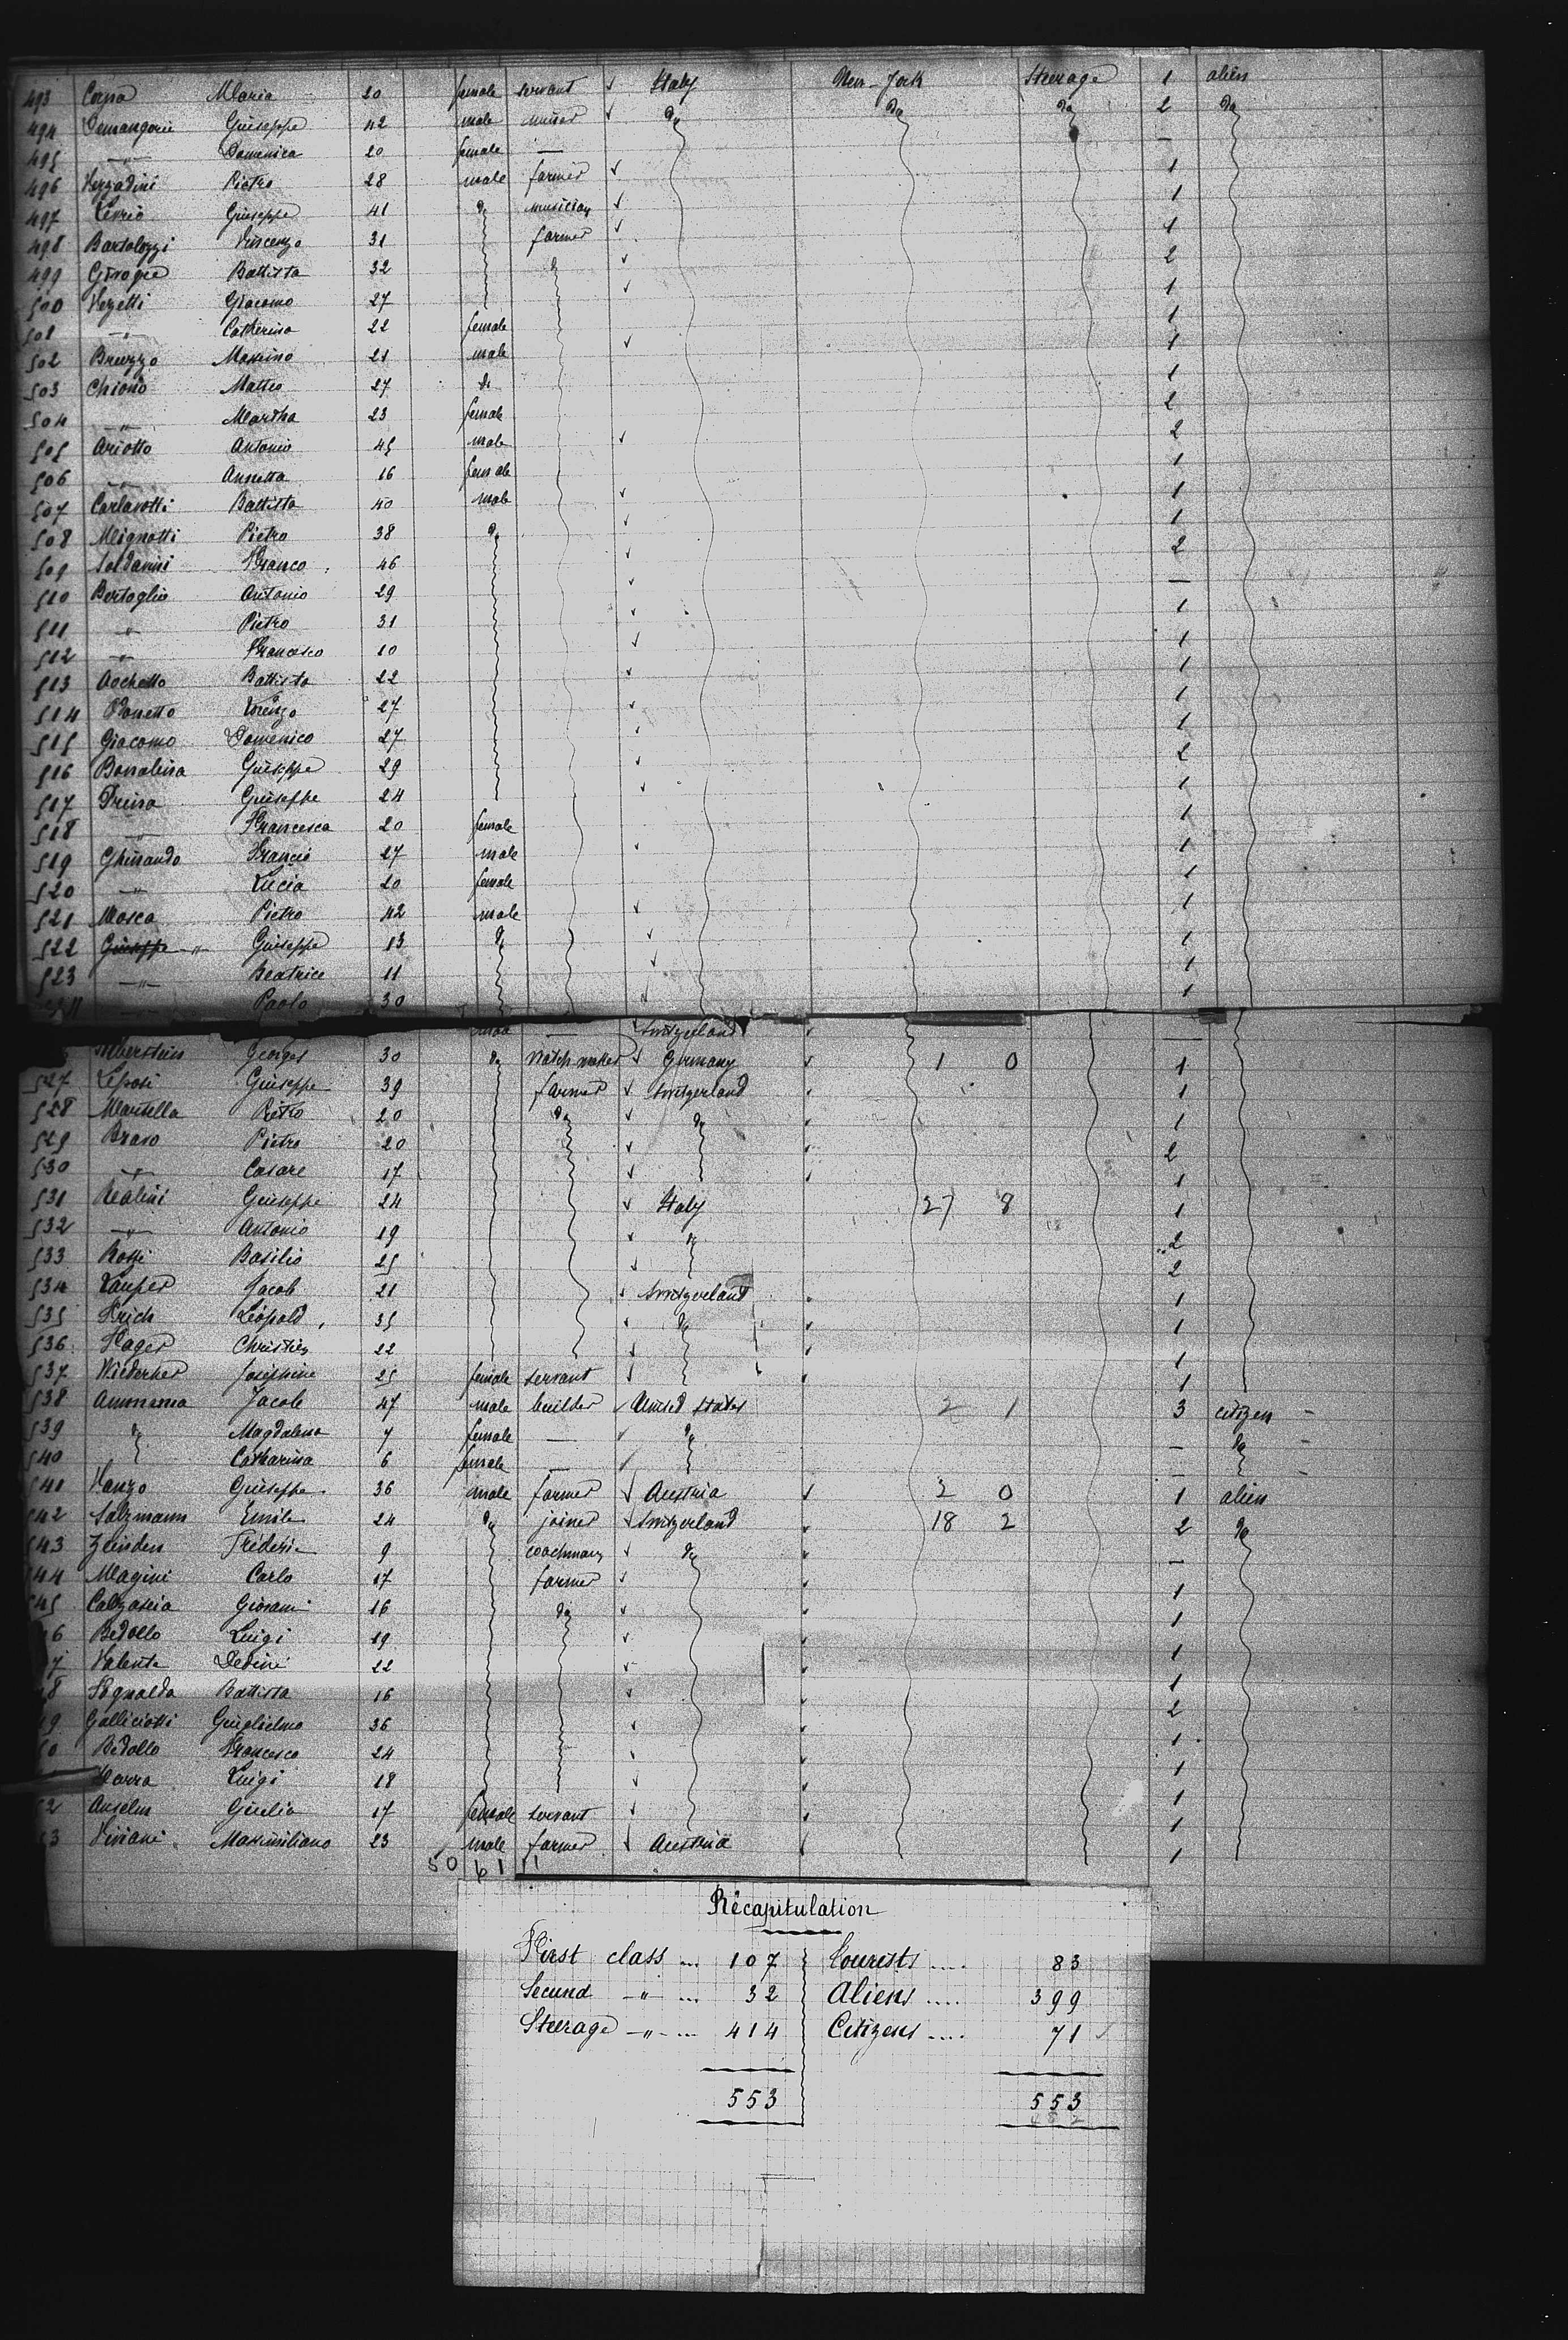 493 Maria 20 female servant Italy New-York Steerage 1 aliens
494 Giuseppe 42 male do do do 2 do
495 —"— Domenica 20 female — —
496 Verzadini Pietro 28 male farmer 1
497 Giuseppe 41 do musician 1
498 Bartolozzi Vincenzo 31 farmer 1
499 Battista 32 do 2
500 Vezetti Giacomo 27 1
501 —"— Catherina 22 female 1
502 Bruzzo Massimo 21 male 1
503 Chiono Matteo 27 do 1
504 —"— Martha 23 female 2
505 Ariotto Antonio 45 male 2
506 —"— Annetta 16 female 1
507 Carlavotti Battista 40 male 1
508 Mignotti Pietro 38 do 1
509 Soldavini Franco 46 2
510 Bertoglio Antonio 29 —
511 —"— Pietro 31 1
512 —"— Francesco 10 1
513 Aochetto Battista 22 1
514 Ponetto Lorenzo 27 1
515 Giacomo Domenico 27 1
516 Giuseppe 29 2
517 Giuseppe 24 1
518 —"— Francesca 20 female 1
519 Ghirando 27 male 1
520 —"— Lucia 20 female 1
521 Mosca Pietro 42 male 1
522 Giuseppe —"— Giuseppe 13 do 1
523 —"— Beatrice 11 1
Paolo 30 1
— Switzerland —
Georges 30 do Watch maker Germany 1 0 1
527 Leposi Giuseppe 39 farmer Switzerland 1
528 Martella Pietro 20 do do 1
529 Braso Pietro 20 2
530 —"— Cesare 17 1
531 Realini Giuseppe 24 Italy 27 8 1
532 —"— Antonio 19 do 2
533 Rossi Basilio 25 2
534 Jacob 21 Switzerland 1
535 Frich Léopold 35 do 1
536 Hager Christien 22 1
537 Wiederker Joséphine 25 female servant 1
538 Ammann Jacob 47 male builder United States 2 1 3 citizen -
539 do Magdalena 7 female — do — do -
540 Catharina 6 female — — -
541 Vanzo Giuseppe 36 male farmer Austria 2 0 1 alien
542 Salzmann Emile 24 do joiner Switzerland 18 2 2 do
543 Zeinden Fréderic 9 coachman do —
544 Magini Carlo 17 farmer 1
545 Calzascia Giovani 16 do 1
6 Bedollo Luigi 19 1
7 Valenta Dedini 22 1
8 Battista 16 2
9 Galliciotti Guglielmo 36 1
0 Bedollo Francesco 24 1
Luigi 18 1
2 Anselm Giulia 17 female servant 1
3 Viviani Maximiliano 23 male farmer Austria 1
50 61 11
Récapitulation
First class ... 107 Tourists .... 83
Secund —"— ... 32 Aliens .... 399
Steerage —"— ... 414 Citizens .... 71
553 553
482